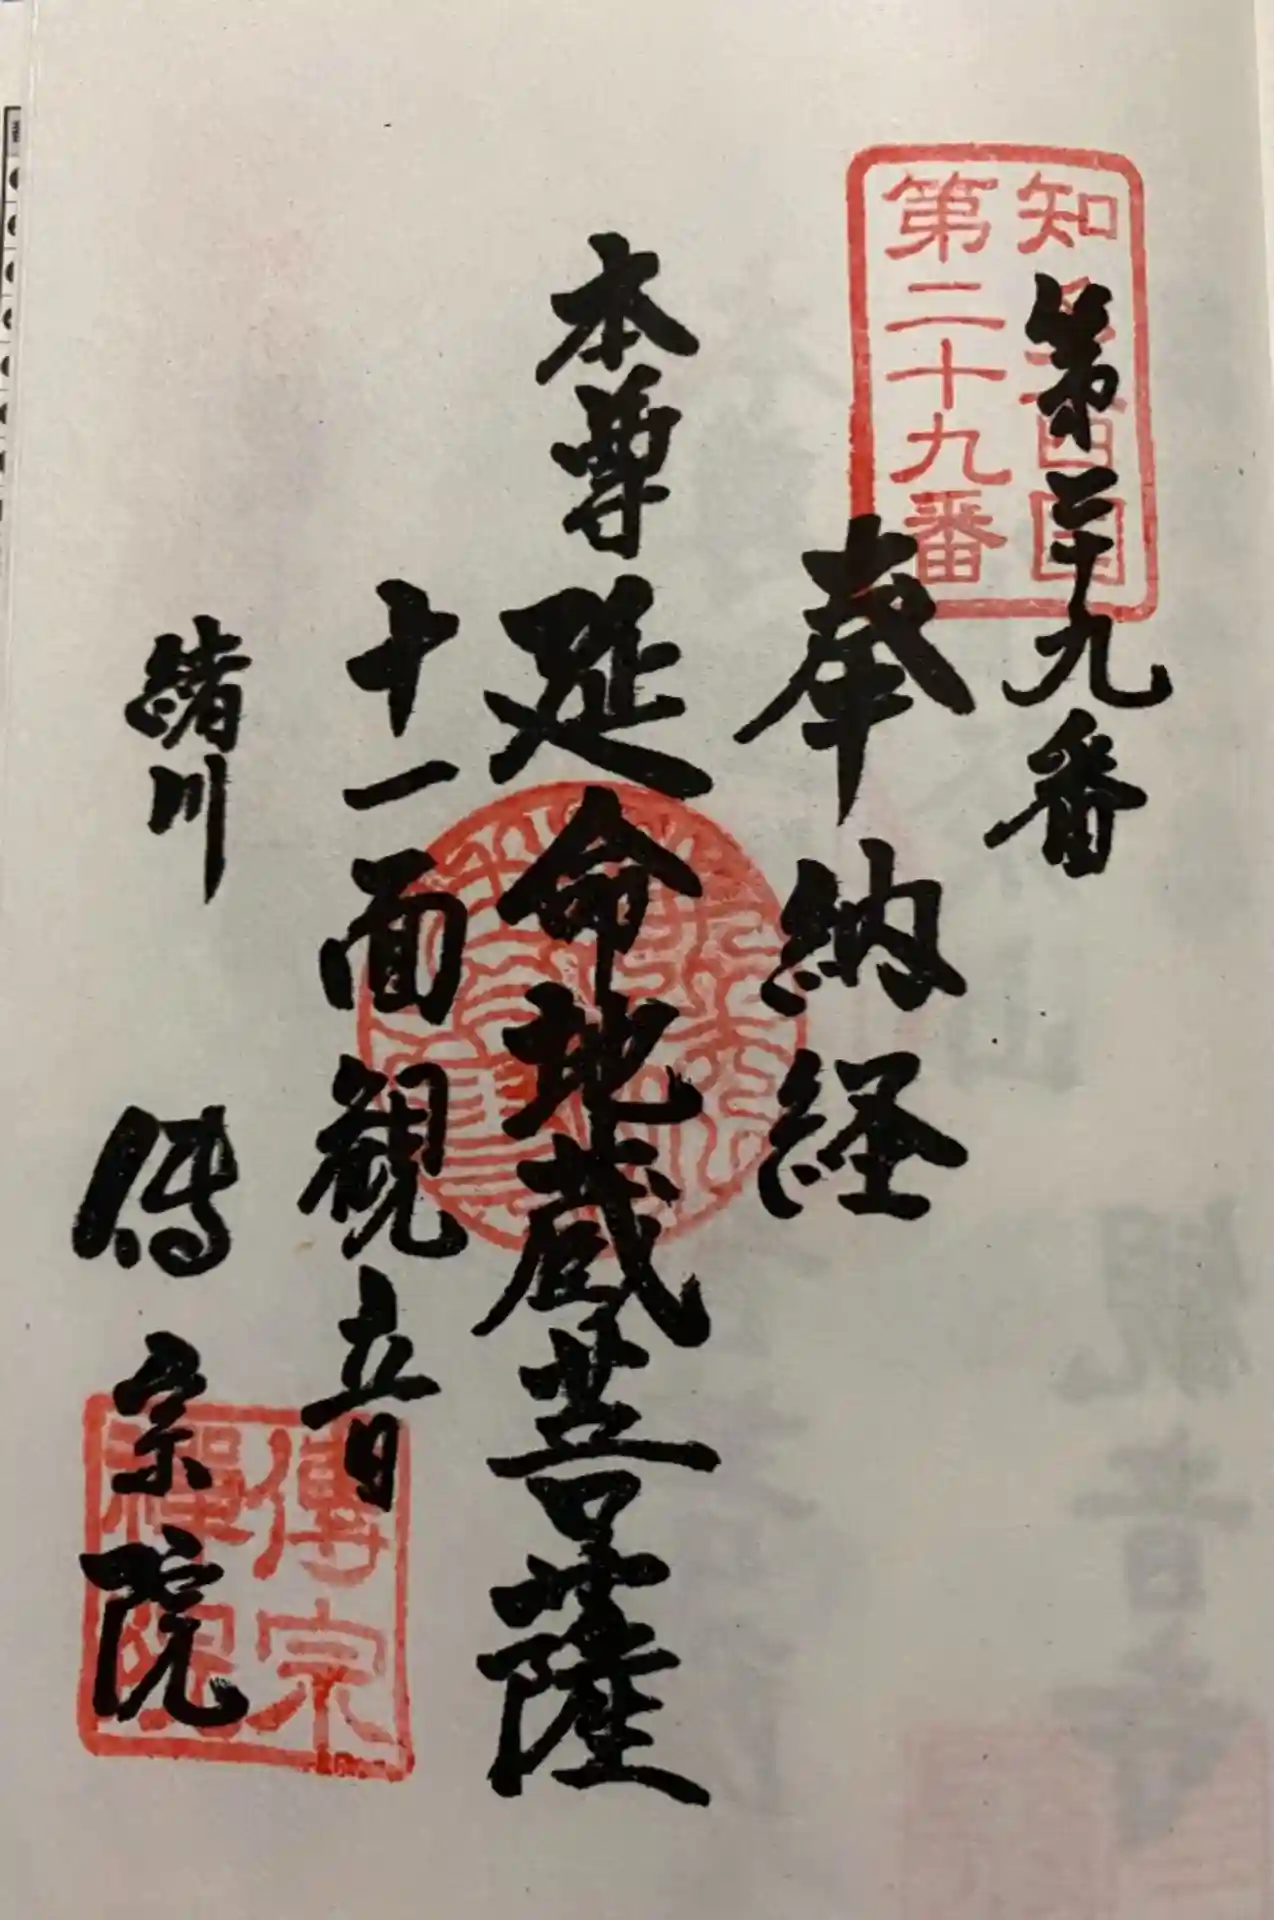 第二十九番
奉納経
本尊延命地蔵菩薩
十一面観音
緒川
傳宗院
知多四国
第二十九番
傳宗
禅院